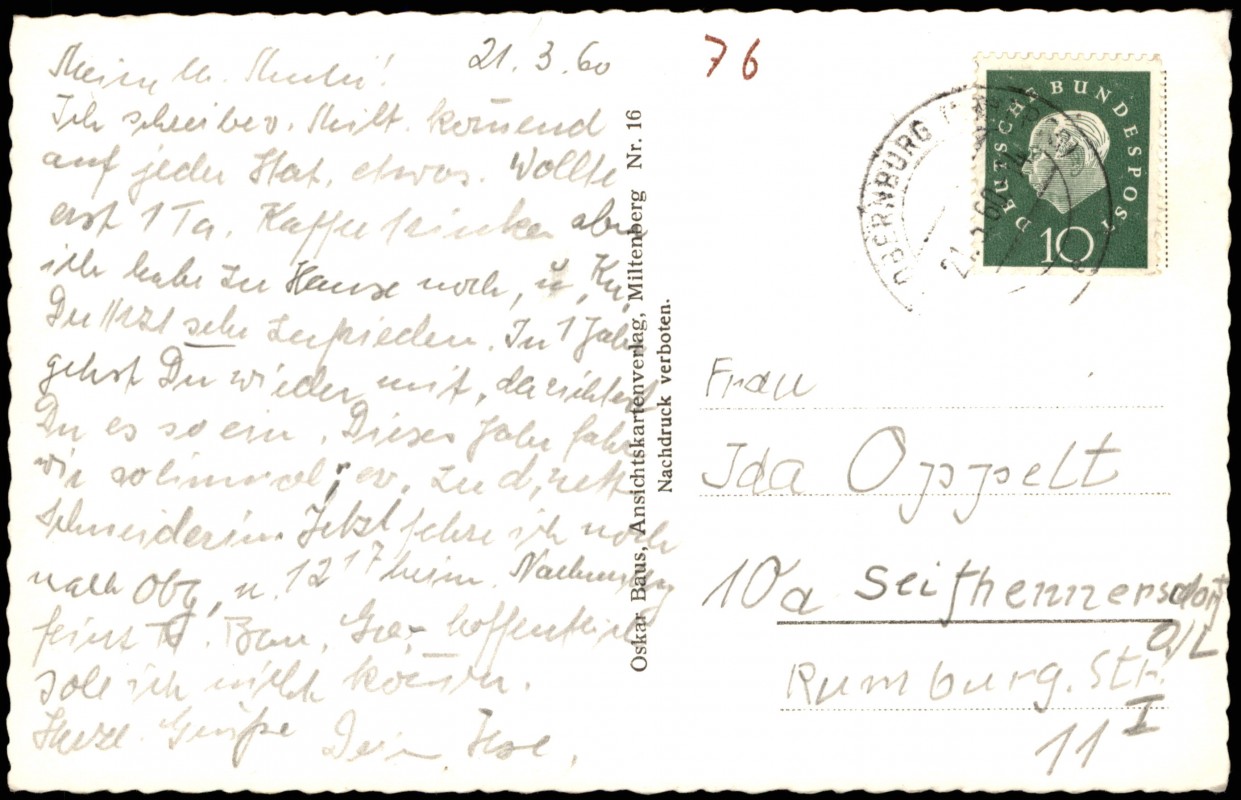 21.3.60
76
Meine lb. Mutti!
Ich schreibe v. Milt. komend
auf jeder Stat. etwas. Wollte
erst 1 Ta. Kaffee trinken aber
ich habe zu Hause noch, u, Ku.
Du Arzt sehr zufrieden. In 1 Jahr
gehst Du wieder mit, da richtest
Du es so ein. Dieses Jahr fahr
wir so ev. zu d. nett
Schneiderin. Jetzt fahre ich noch
nach Obg, u. 12 17 heim. Nachmittag
Bau, hoffentlich
soll ich nicht
Herzl. Grüße Dein Ilse.
Oskar Baus, Ansichtskartenverlag, Miltenberg Nr. 16
Nachdruck verboten.
OBERNBURG
DEUTSCHE BUNDESPOST
10
Frau
Ida Oppelt
10a Seifhennersdorf
O/L
Rumburg. Str.
11 I